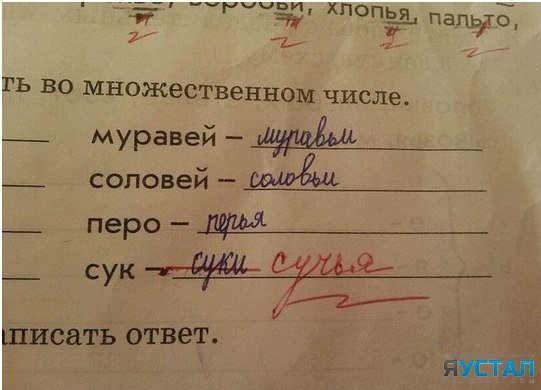 воробьи, хлопья, пальто,
ть во множественном числе.
муравей – муравьи
соловей – соловьи
перо – перья
сук – суки сучья
аписать ответ.
ЯУСТАЛ